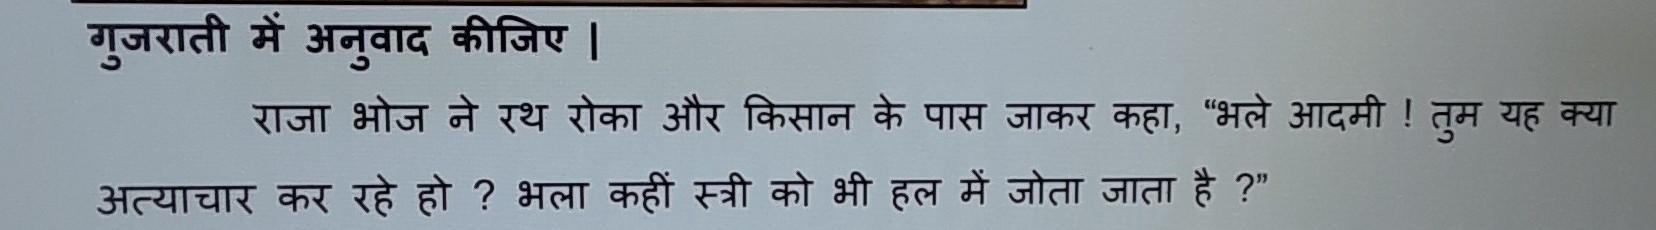 गुजराती में अनुवाद कीजिए |
राजा भोज ने रथ रोका और किसान के पास जाकर कहा, “भले आदमी ! तुम यह क्या
अत्याचार कर रहे हो ? भला कहीं स्त्री को भी हल में जोता जाता है ?”